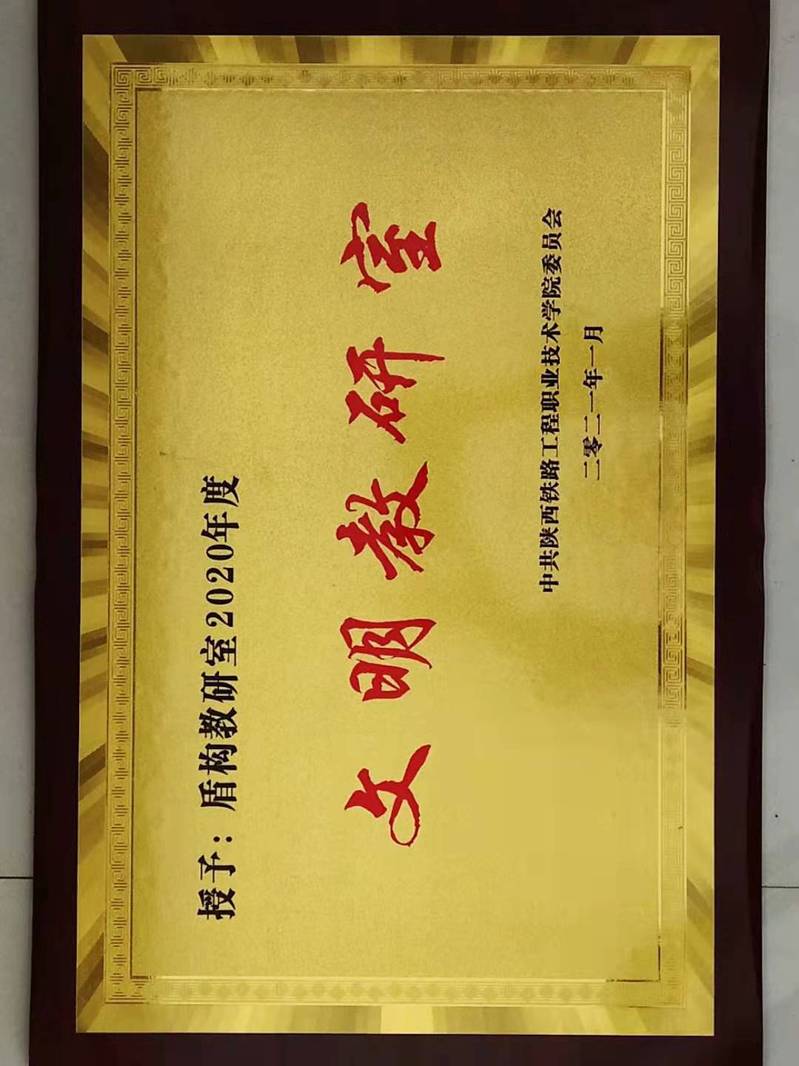 授予：盾构教研室2020年度
文明教研室
中共陕西铁路工程职业技术学院委员会
二零二一年一月